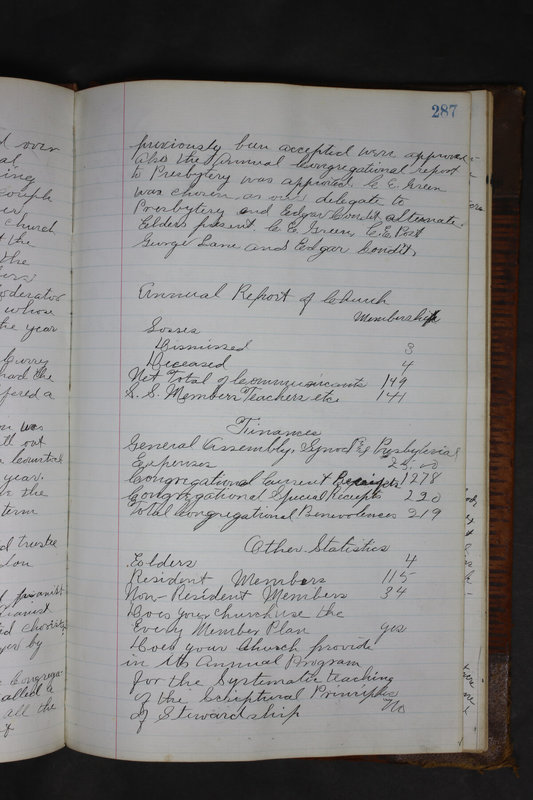 287
previously been accepted were approved
Also the Annual Congregational report
to Presbytery was approved. C. E. Green
was chosen as our delegate to
Presbytery and Edgar Condit alternate.
Elders present C. E. Green, C. E. Post
George Lane and Edgar Condit,
Annual Report of Church
Membership
Losses
Dismissed 3
Deceased 4
Net Total of Communicants 149
S. S. Members Teachers etc 141
Finances
General Assembly, Synod & Presbyterial
Expenses
Congregational Current Receipts 1278
Congregational Special Receipts 230
Total Congregational Benevolences 219
Other Statistics
Elders 4
Resident Members 115
Non-Resident Members 34
Does your church use the
Every Member Plan yes
Does your Church provide
in its Annual Program
for the Systematic teaching
of the Scriptural Principles
of Stewardship No
d over
church
t the
the
oderator
whose
the year
had the
offered a
ll out
year.
the
term
d trustee
called a
all the
of